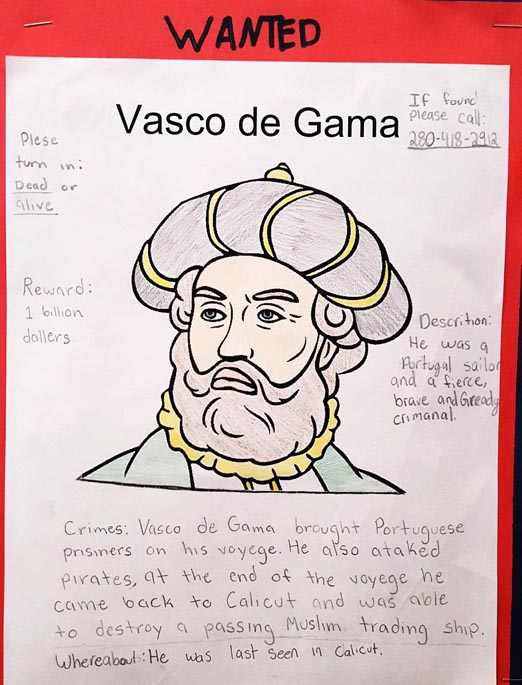 WANTED
Vasco de Gama
If found
please call:
280-418-2912
Plese
turn in:
Dead or
alive
Reward:
1 billion
dollers
Descrition:
He was a
Portugal sailor
and a fierce,
brave and Gready
crimanal.
Crimes: Vasco de Gama brought Portuguese
prisiners on his voyege. He also ataked
pirates, at the end of the voyege he
came back to Calicut and was able
to destroy a passing Muslim trading ship.
Whereabout: He was last seen in Calicut.